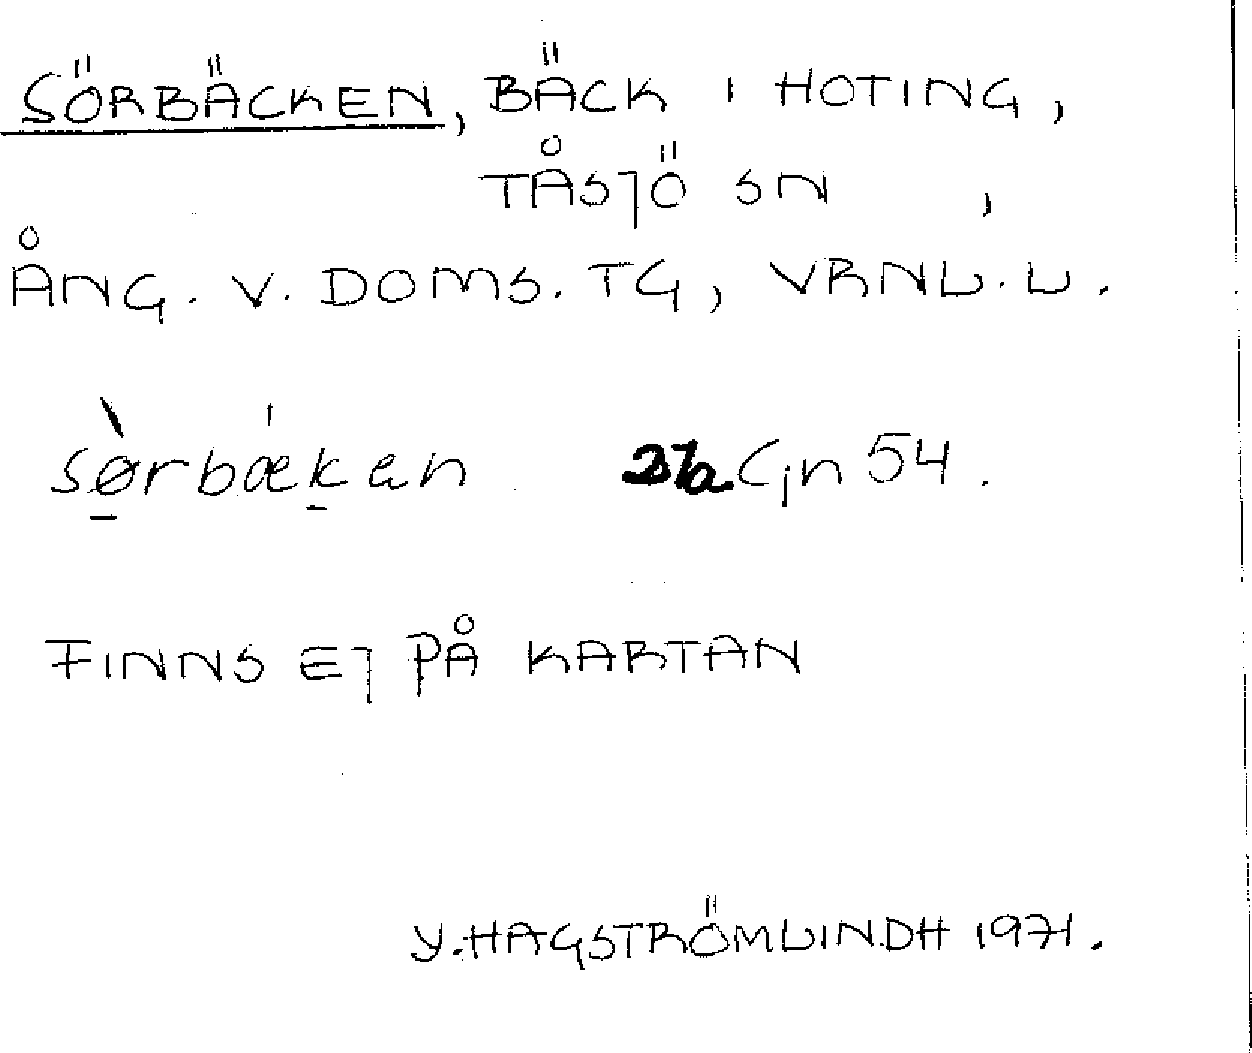 SÖRBÄCKEN, BÄCK I HOTING,
TÅSJÖ SN ,
ÅNG. V. DOMS. TG, VRNL. L.
sø̠̀rbǽk̠en C,n 54.
FINNS EJ PÅ KARTAN
Y. HAGSTRÖMLINDH 1971.